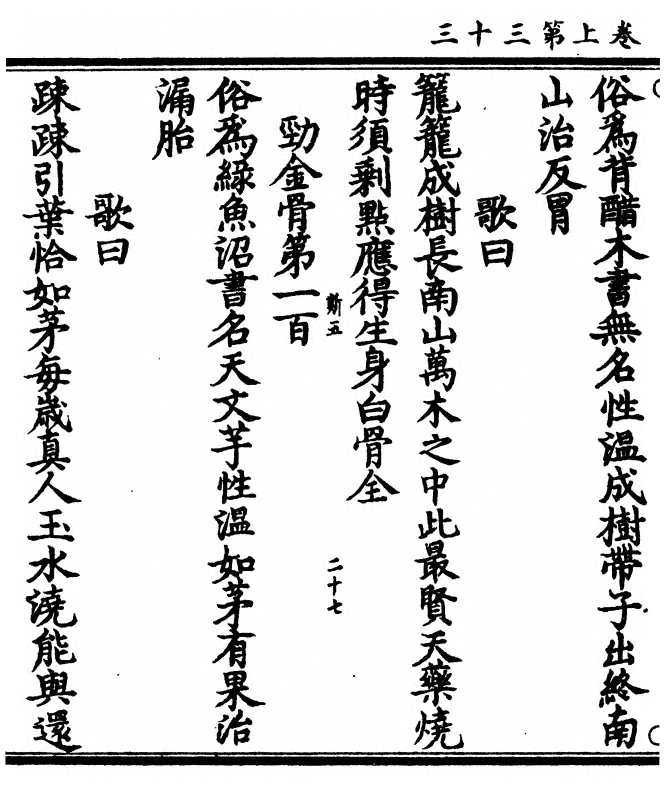 卷上第三十三
俗爲背醋木書無名性温成樹帶子出終南
山治反胃
歌曰
籠籠成樹長南山萬木之中此最賢天藥燒
時須剩點應得生身白骨全
斯五
二十七
勁金骨第一百
俗爲緑魚沼書名天文芋性温如茅有果治
漏胎
歌曰
踈踈引葉恰如茅每歲真人玉水澆能與還